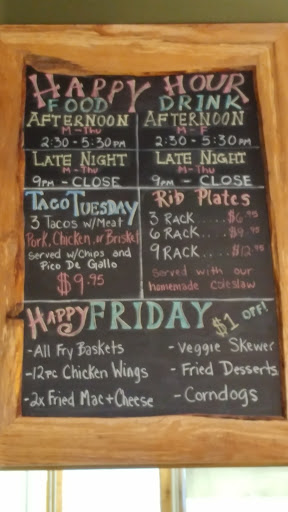 HAPPY HOUR
FOOD
AFTERNOON
M-Thu
2:30 - 5:30PM
LATE NIGHT
M-Thu
9PM - CLOSE
DRINK
AFTERNOON
M - F
2:30 - 5:30PM
LATE NIGHT
M-Thu
9PM - CLOSE
TACO TUESDAY
3 Tacos w/Meat
Pork, Chicken, or Brisket
Served w/Chips and
Pico De Gallo
$9.95
Rib Plates
3 RACK.....$6.95
6 RACK....$9.95
9 RACK....$12.95
Served with our
homemade coleslaw
HAPPY FRIDAY $1 OFF!
-All Fry Baskets
-12pc Chicken Wings
-2x Fried Mac+Cheese
- Veggie Skewer
- Fried Desserts
- Corndogs